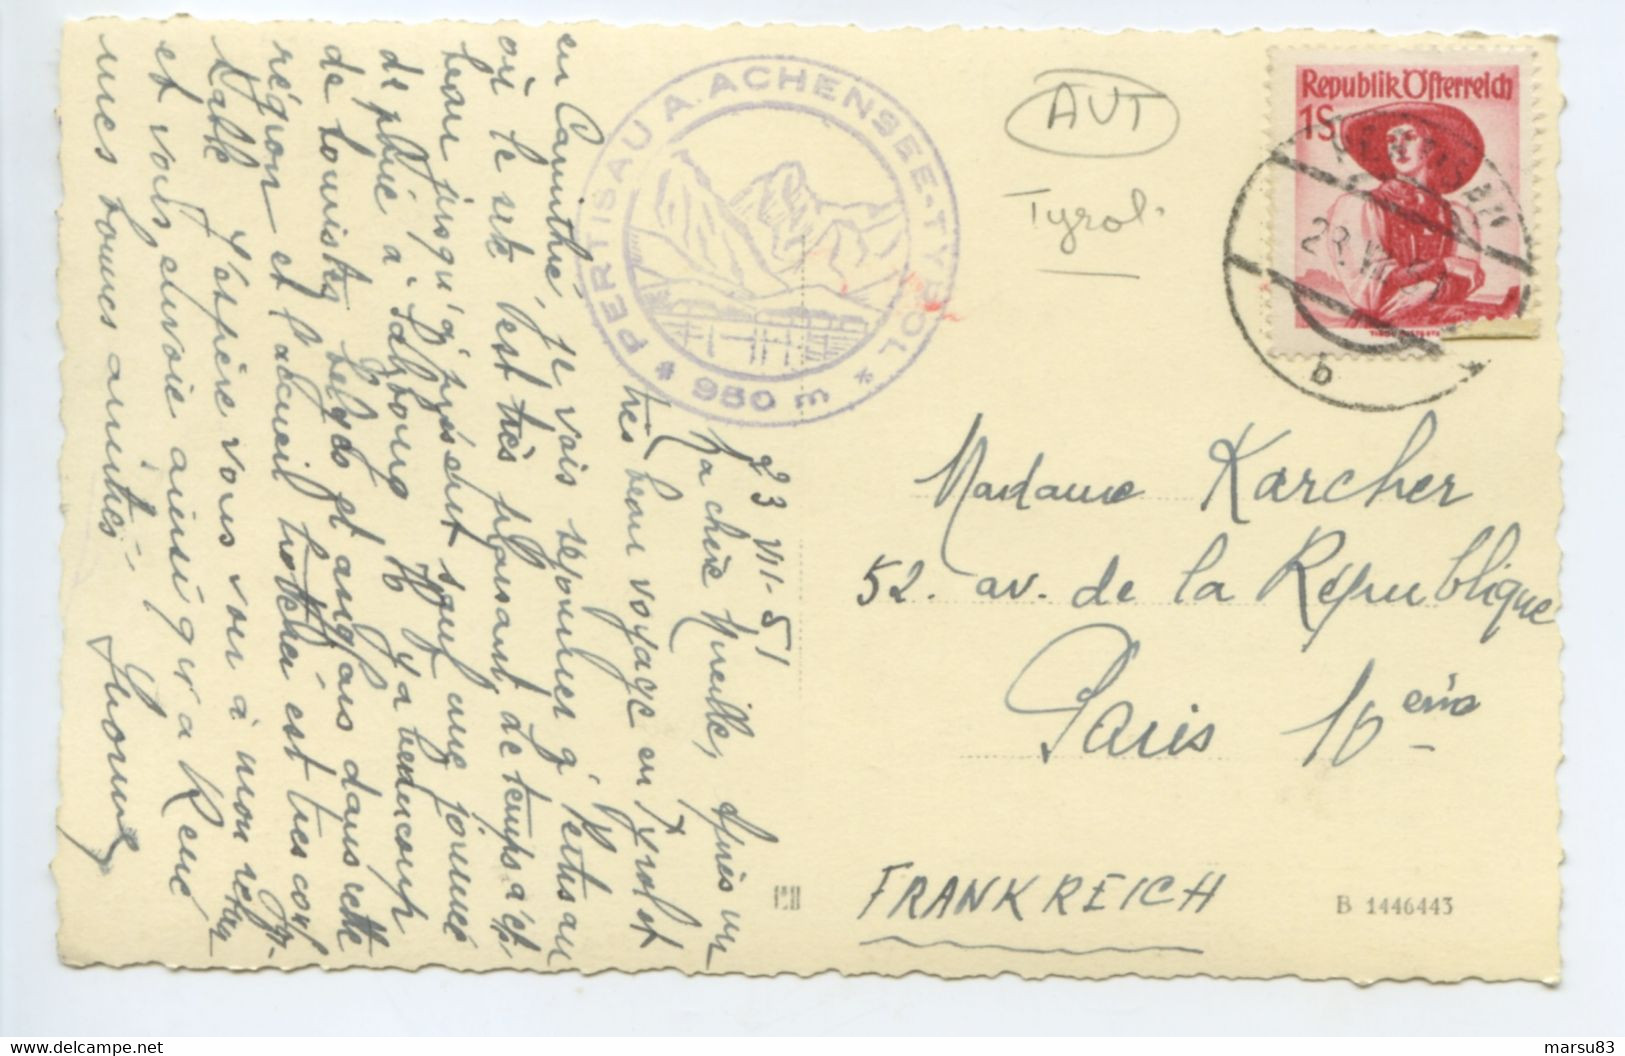 23 VI-51
Ma chère Mireille, Après un
très beau voyage en Tyrol et
en Carinthie, je vais séjourner à Pertisau
où le site est très plaisant, de temps
beau jusqu'à présent sauf une journée
de pluie à Salzbourg. Il y a beaucoup
de touristes belges et anglais dans cette
région et l'accueil est très
J'espère vous voir à mon
et vous envoie ainsi qu'à René
mes bonnes amitiés
PERTISAU A. ACHENSEE-TYROL
* 950 m *
AUT
Tyrol.
Republik Österreich
1S
b
Madame Karcher
52. av. de la République
Paris 10 ème
FRANKREICH
B 1446443
marsu83